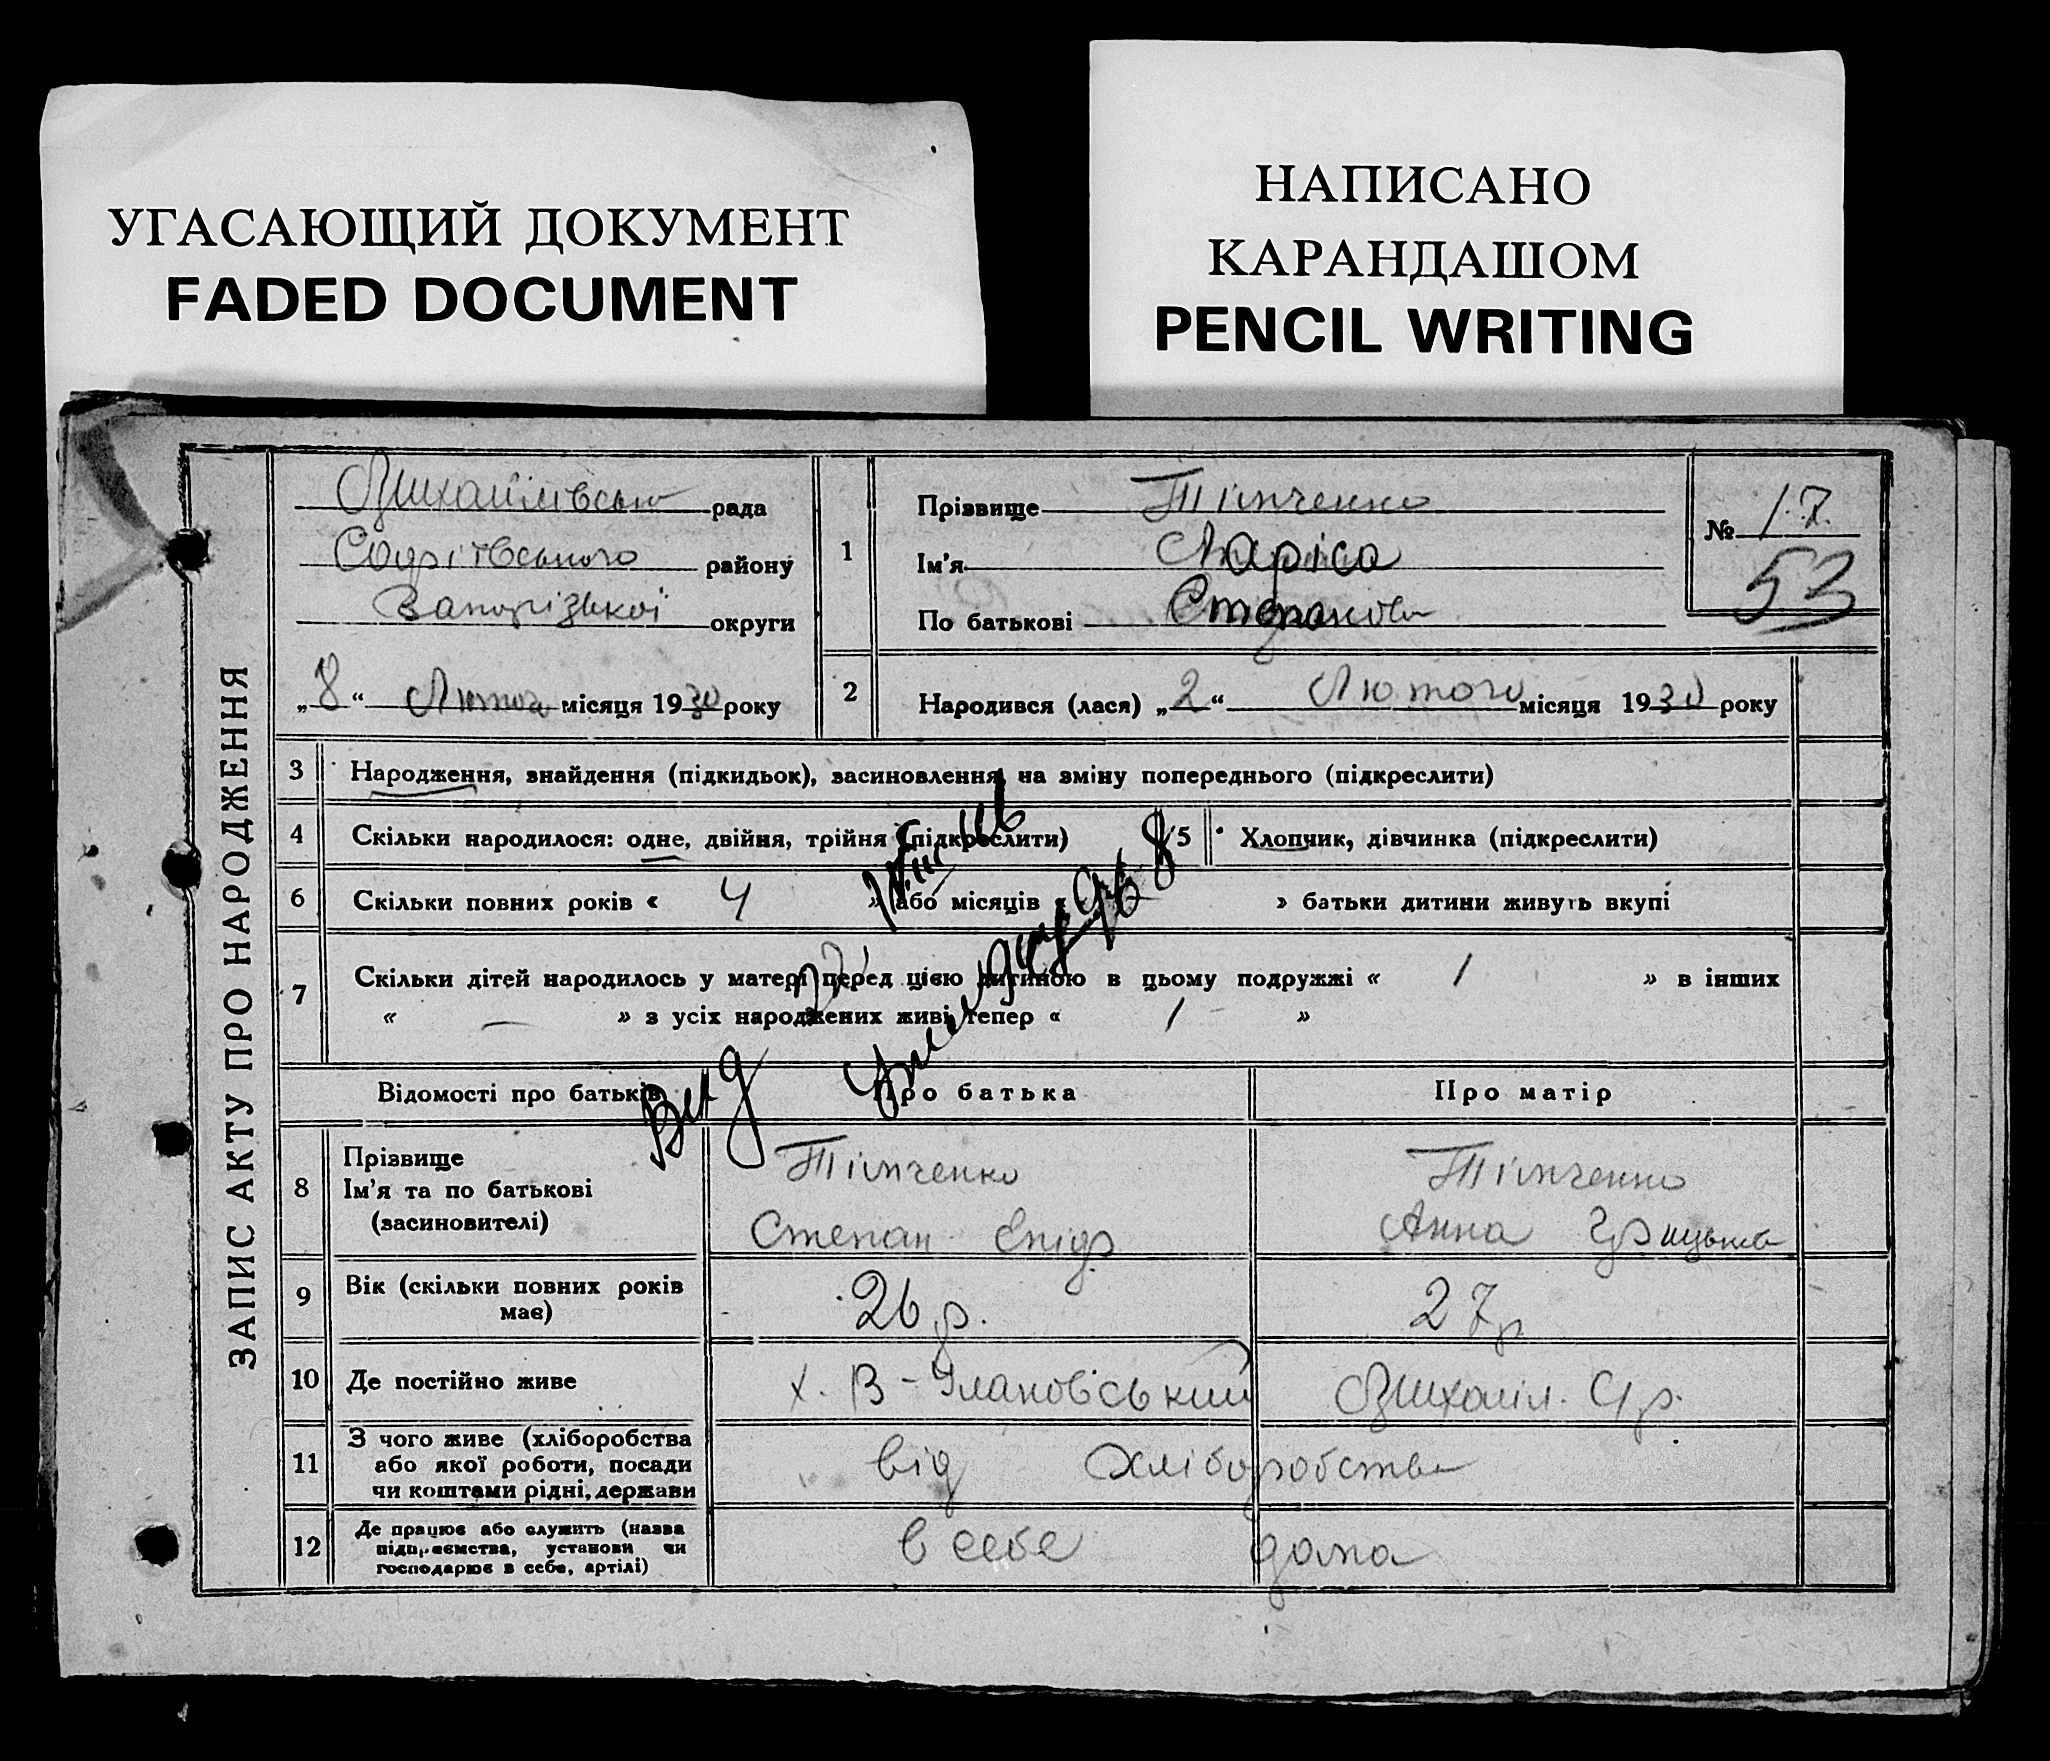 УГАСАЮЩИЙ ДОКУМЕНТ
FADED DOCUMENT
НАПИСАНО
КАРАНДАШОМ
PENCIL WRITING
ЗАПИС АКТУ ПРО НАРОДЖЕННЯ
Михайлівська рада
району
Запорізької округи
„8“ Лютого місяця 1930 року
1
Прізвище Тімченко
Ім'я Лариса
По батькові Степанова
№ 17
53
2 Народився (лася) „2“ Лютого місяця 1930 року
3 Народження, знайдення (підкидьок), засиновлення на зміну попереднього (підкреслити)
4 Скільки народилося: одне, двійня, трійня (підкреслити) 5 Хлопчик, дівчинка (підкреслити)
6 Скільки повних років « 4 » або місяців « » батьки дитини живуть вкупі
7 Скільки дітей народилось у матері перед цією дитиною в цьому подружжі « 1 » в інших
« — » з усіх народжених живі тепер « 1 »
Відомості про батьків Про батька Про матір
8 Прізвище
Ім'я та по батькові
(засиновителі)
Тімченко
Степан Єпідр
Тімченко
Анна Грицьква
9 Вік (скільки повних років
має)
26 р. 27 р
10 Де постійно живе х. В-Улановський Михайл. С/р.
11 З чого живе (хліборобства
або якої роботи, посади
чи коштами рідні, держави
від хліборобства
12 Де працює або служить (назва
підприємства, установи чи
господарює в себе, артілі)
в себе дома